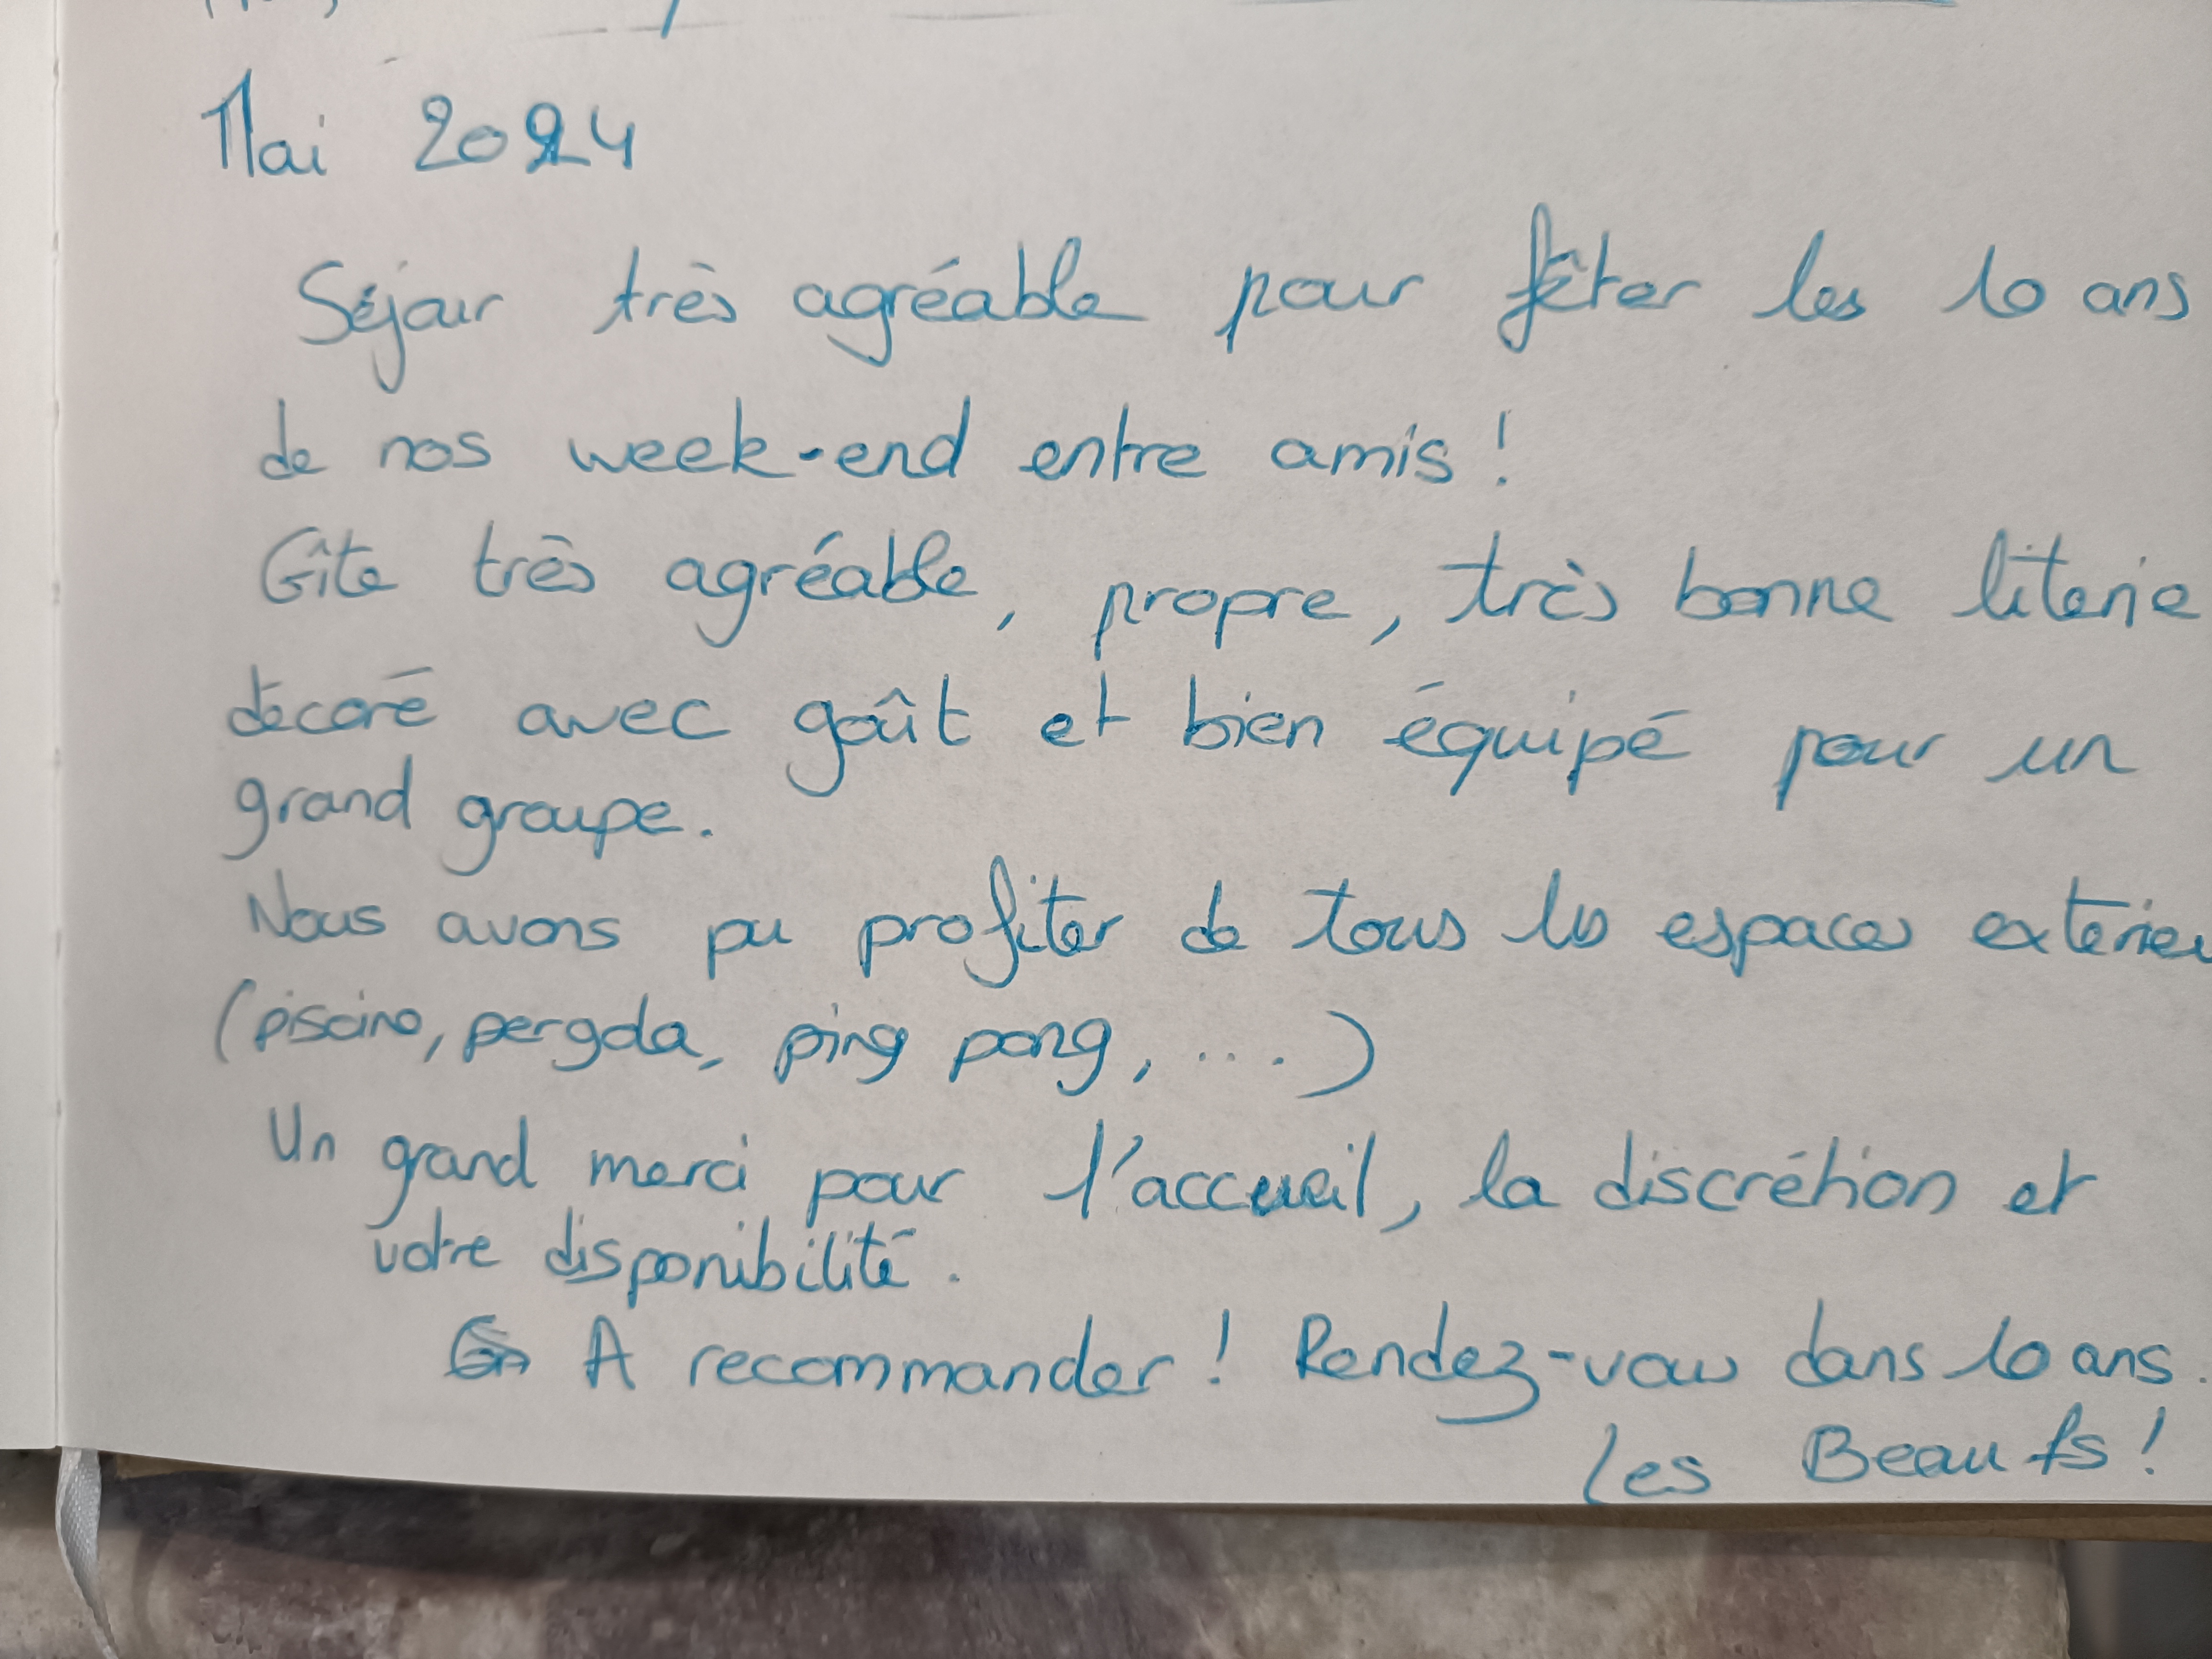 Mai 2024
Séjour très agréable pour fêter les 10 ans
de nos week-end entre amis !
Gîte très agréable, propre, très bonne literie
décoré avec goût et bien équipé pour un
grand groupe.
Nous avons pu profiter de tous les espaces extérieu
(piscine, pergola, ping pong, ....)
Un grand merci pour l'accueil, la discrétion et
votre disponibilité.
A recommander ! Rendez-vous dans 10 ans.
Les Beaufs !